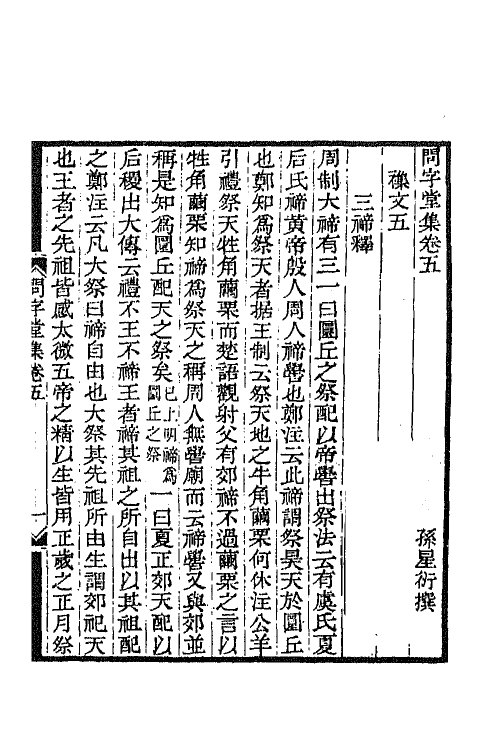 問字堂集卷五
孫星衍撰
襍文五
三禘釋
周制大禘有三一曰圜丘之祭配以帝嚳出祭法云有虞氏夏
后氏禘黃帝殷人周人禘嚳也鄭注云此禘謂祭昊天於圜丘
也鄭知爲祭天者據王制云祭天地之牛角繭栗何休注公羊
引禮祭天牲角繭栗而楚語觀射父有郊禘不過繭栗之言以
牲角繭栗知禘爲祭天之稱周人無嚳廟而云禘嚳又與郊並
稱是知爲圜丘配天之祭矣已上明禘爲圜丘之祭一曰夏正郊天配以
后稷出大傳云禮不王不禘王者禘其祖之所自出以其祖配
之鄭注云凡大祭曰禘自由也大祭其先祖所由生謂郊祀天
也王者之先祖皆感太微五帝之精以生皆用正歲之正月祭
問字堂集卷五
一